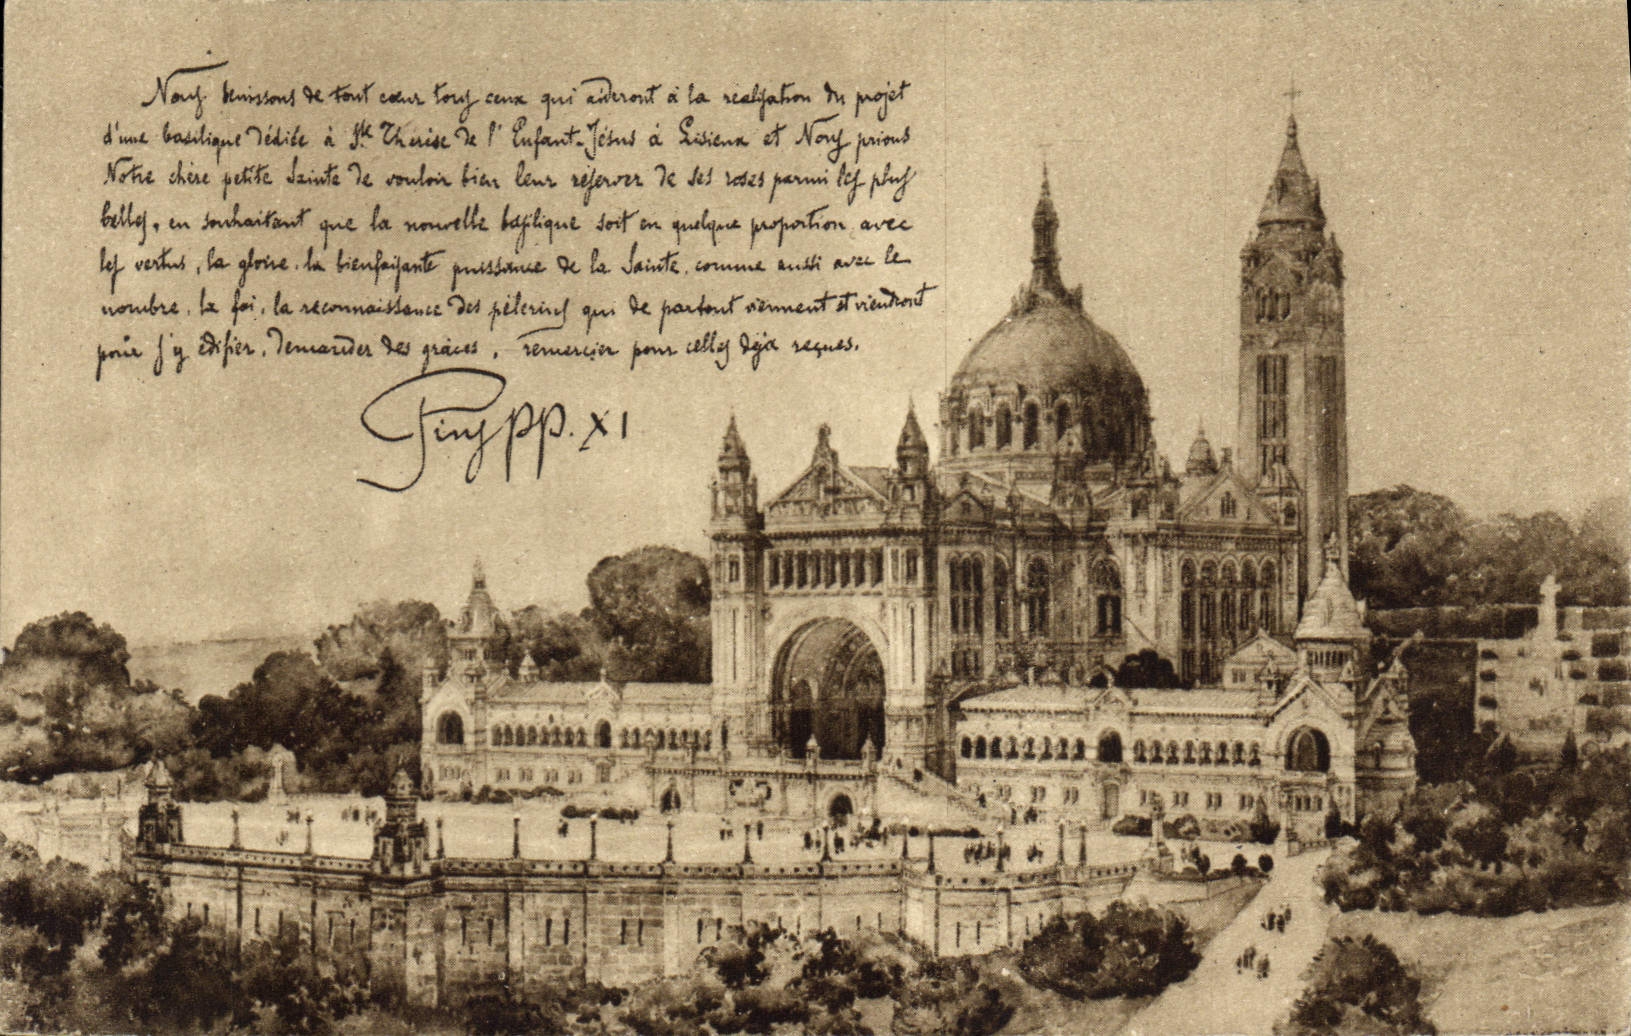 Nous benissons de tout cœur tous ceux qui aideront à la réalisation du projet
d'une basilique dédiée à Ste Thérèse de l'Enfant-Jésus à Lisieux et Nous prions
Notre chère petite Sainte de vouloir bien leur réserver de ses roses parmi les plus
belles, en souhaitant que la nouvelle basilique soit en quelque proportion avec
les vertus, la gloire, la bienfaisante puissance de la Sainte, comme aussi avec le
nombre, la foi, la reconnaissance des pèlerins qui de partout viennent et viendront
pour s'y édifier, demander des grâces, remercier pour celles déjà reçues.
Pius PP. XI